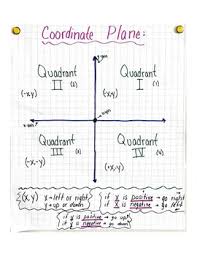 Coordinate Plane:
y-axis
Quadrant
II (2)
(-x,y)
Quadrant
I (1)
(x,y)
x-axis
Origin
Quadrant
III (3)
(-x,-y)
Quadrant
IV (4)
(+x,-y)
(x,y) x→left or right
y→up or down
if x is positive → go right
if x is negative → go left
if y is positive → go up
if y is negative → go down